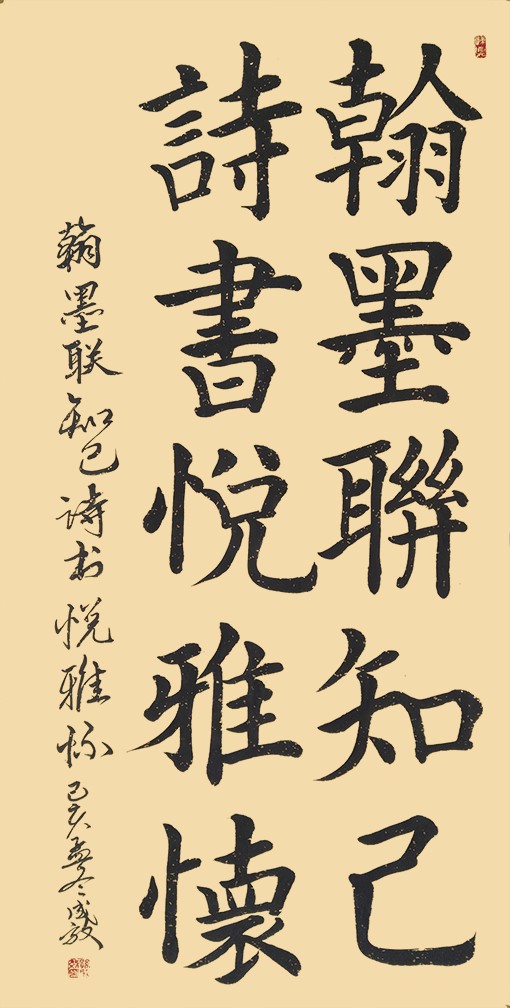 翰墨聯知己
詩書悅雅懷
翰墨联知己诗书悦雅怀己亥孟冬